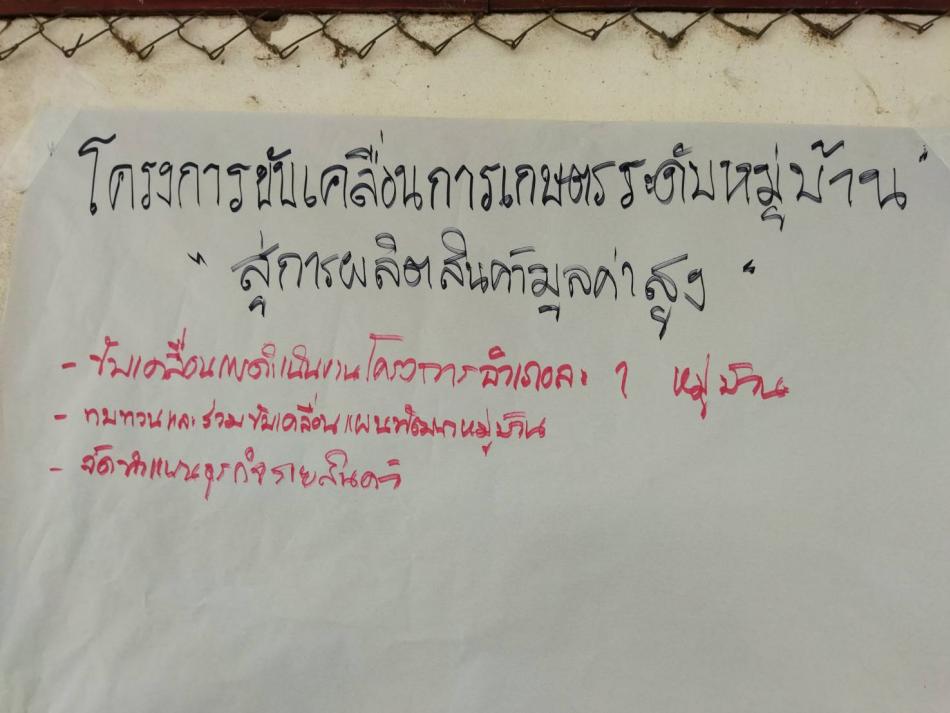 " โครงการขับเคลื่อนการเกษตรระดับหมู่บ้าน "
" สู่การผลิตสินค้ามูลค่าสูง "
- ขับเคลื่อนแผนดำเนินงานโครงการอำเภอละ 1 หมู่บ้าน
- ทบทวนและร่วมขับเคลื่อนแผนพัฒนาหมู่บ้าน
- จัดทำแผนธุรกิจรายสินค้า